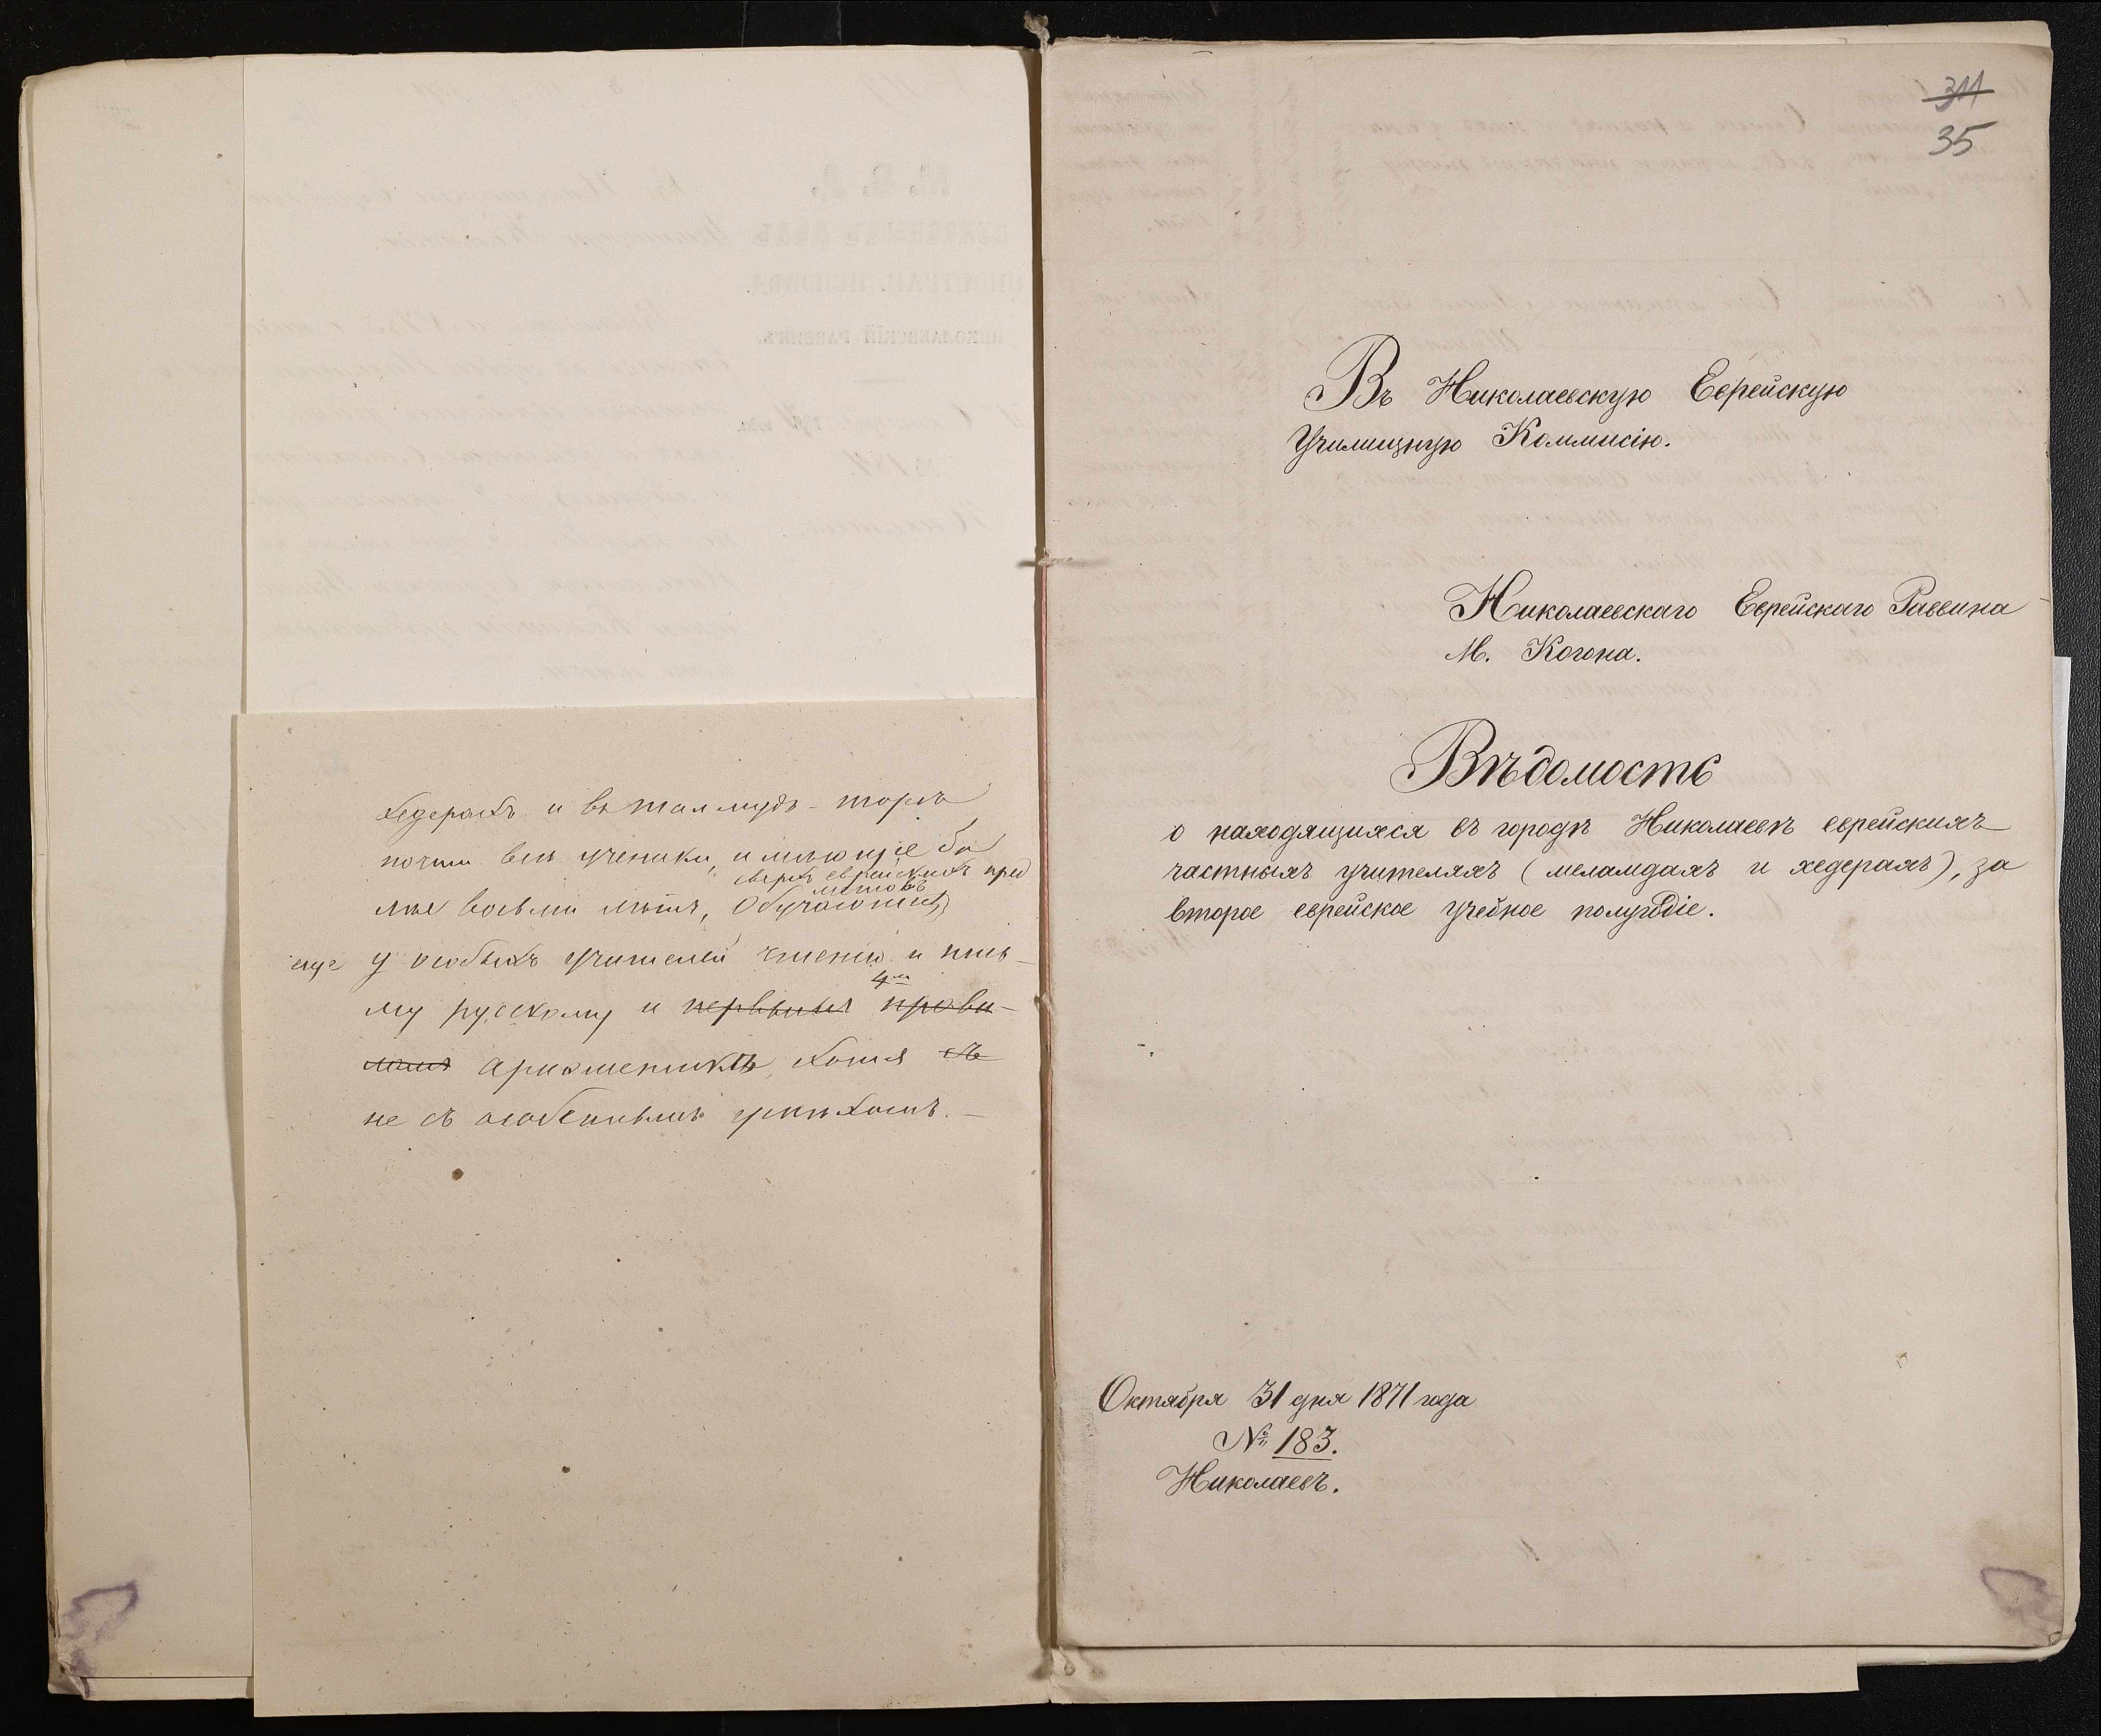 хедерахъ и въ талмудъ-торѣ
почти всѣ ученики, имѣющіе бо
сверхъ еврейскихъ пред
метовъ
лѣе восьми лѣтъ, обучаются
еще у особыхъ учителей чтенію и пись-
4мъ
му русскому и первымъ прави-
ламъ ариѳметики, хотя съ
не съ особеннымъ успѣхомъ.
311
35
Въ Николаевскую Еврейскую
Училищную Коммисію.
Николаевскаго Еврейскаго Раввина
М. Когона.
Вѣдомость
о находящихся въ городѣ Николаевѣ еврейскихъ
частныхъ учителяхъ (меламдахъ и хедерахъ), за
второе еврейское учебное полугодіе.
Октября 31 дня 1871 года
№ 183.
Николаевъ.